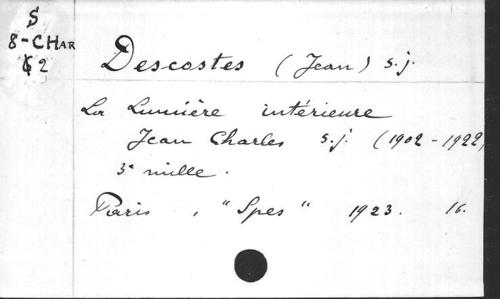 S
8-CHAR
C 2
Descostes (Jean) s.j.
La Lumière intérieure
Jean Charles s.j. (1902-1922)
3e mille.
Paris, "Spes" 1923. 16.